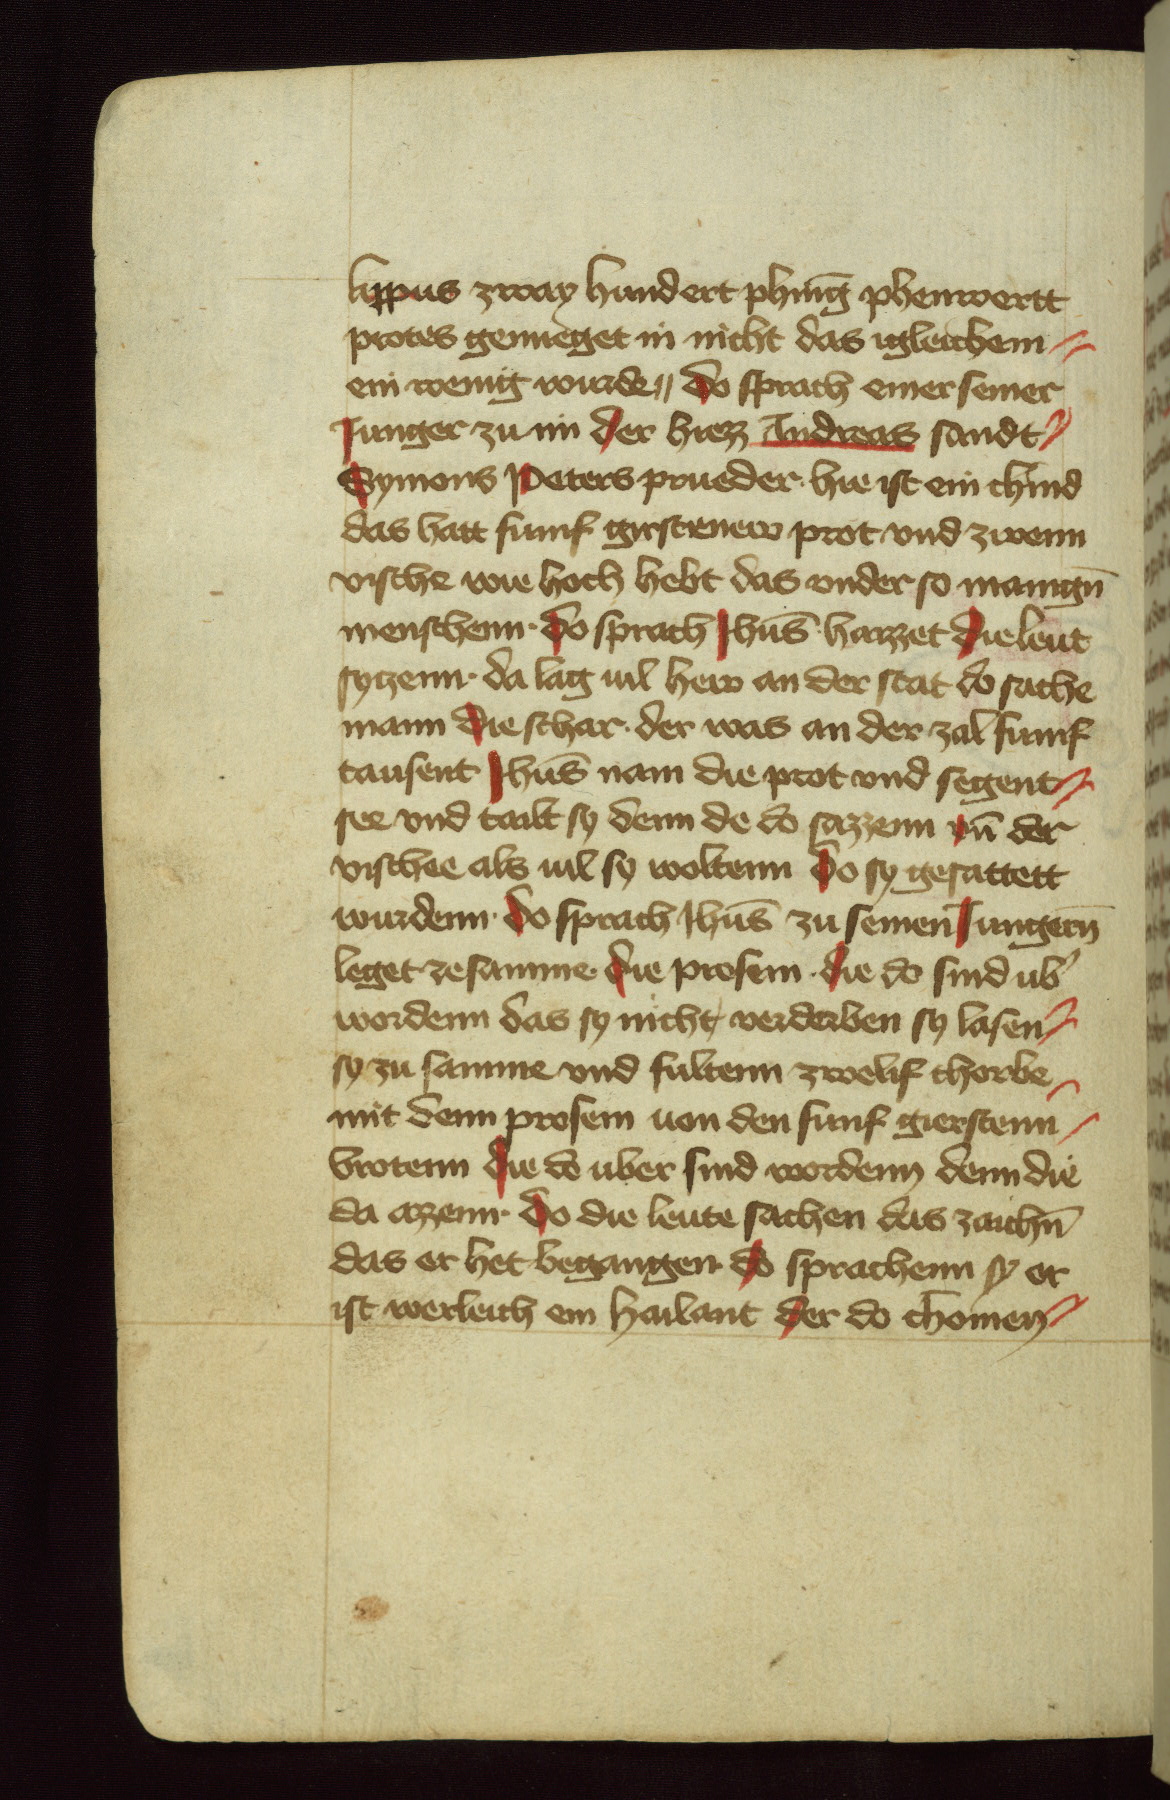 lippus zway hundert phing̅ phenwertt
protes genueget in nicht das igleichem
ein wenig wurde〃 do sprach einer seiner
Junger zu im der hiezz Andreas sandt
Symons Peters prueder· hie ist ein chind
das hatt funf girstenew prot vnd zwenn
vische wie hoch hebt das vnder so manign̅
menschenn· do sprach Jhus̅· hazzet die leut
sytzenn· da lag uil hew an der stat do sache
mann die schar· der was an der zal funf
tausent Jhus̅ nam die prot vnd segent
see vnd tailt sy denn de do sazzenn vn̅ der
vischee als uil sy woltenn do sy gesattett
wurdenn· do sprach Jhus̅ zu seinen Jungern̅
leget zesamme· die prosem· die do sind ub͛
wordenn das sy nicht verderben sy lasen
sy zu samme vnd fultenn zwelif chorbe
mit denn prosem uon den funf gierstenn
brotenn die do uber sind wordenn denn die
da azzenn· do die leute sachen das zaichn̅
das er het begangen· do sprachenn sy er
ist werleich ein hailant der do chomen